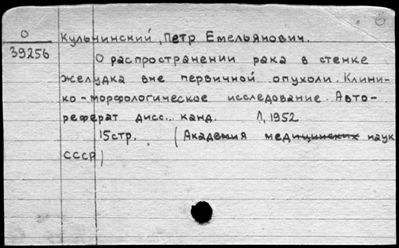 О Кульчинский, Петр Емельянович.
39256
О распространении рака в стенке
желудка вне первичной опухоли. Клини-
ко-морфологическое исследование. Авто-
реферат дисс... канд. Л, 1952
15стр. (Академия медицинских наук
СССР)